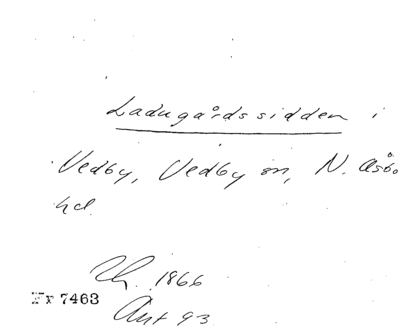 Ladugårdssidden i
Vedby, Vedby sn, N. Åsbo
hd.
Uh. 1866
Fr 7463
Akt 93